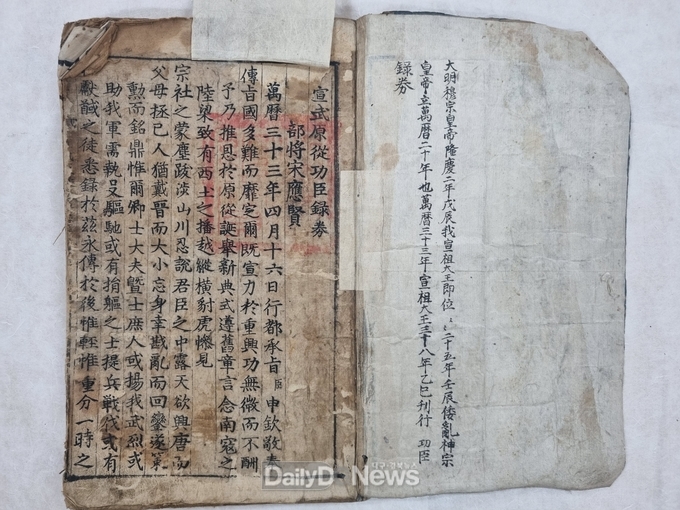 大明穆宗皇帝隆慶二年戊辰我宣祖大王即位〻二十五年壬辰倭亂神宗
皇帝立萬曆二十年也萬曆三十三年宣祖大王三十八年乙巳刊行 功臣
録券
宣武原從功臣録券
部將宋應賢
萬曆三十三年四月十六日行都承旨臣申欽敬奉
傳旨國多難而靡定爾既宣力於重興功無微而不酬
予乃推恩於原從誕舉新典式遵舊章言念南寇之
陸梁致有西土之播越縱橫豺虎慘見
宗社之蒙塵跋涉山川忍說君臣之中露天欲興唐而
父母拯已人猶戴晉而大小忘身幸戡亂而回鑾遂策
勳而銘鼎惟爾卿士大夫曁士庶人或揚我武烈或
助我軍需執殳驅馳或有捐軀之士提兵戰伐或有
獻馘之徒悉録於玆永傳於後惟輕惟重分一時之
DailyD News
대구·경북뉴스